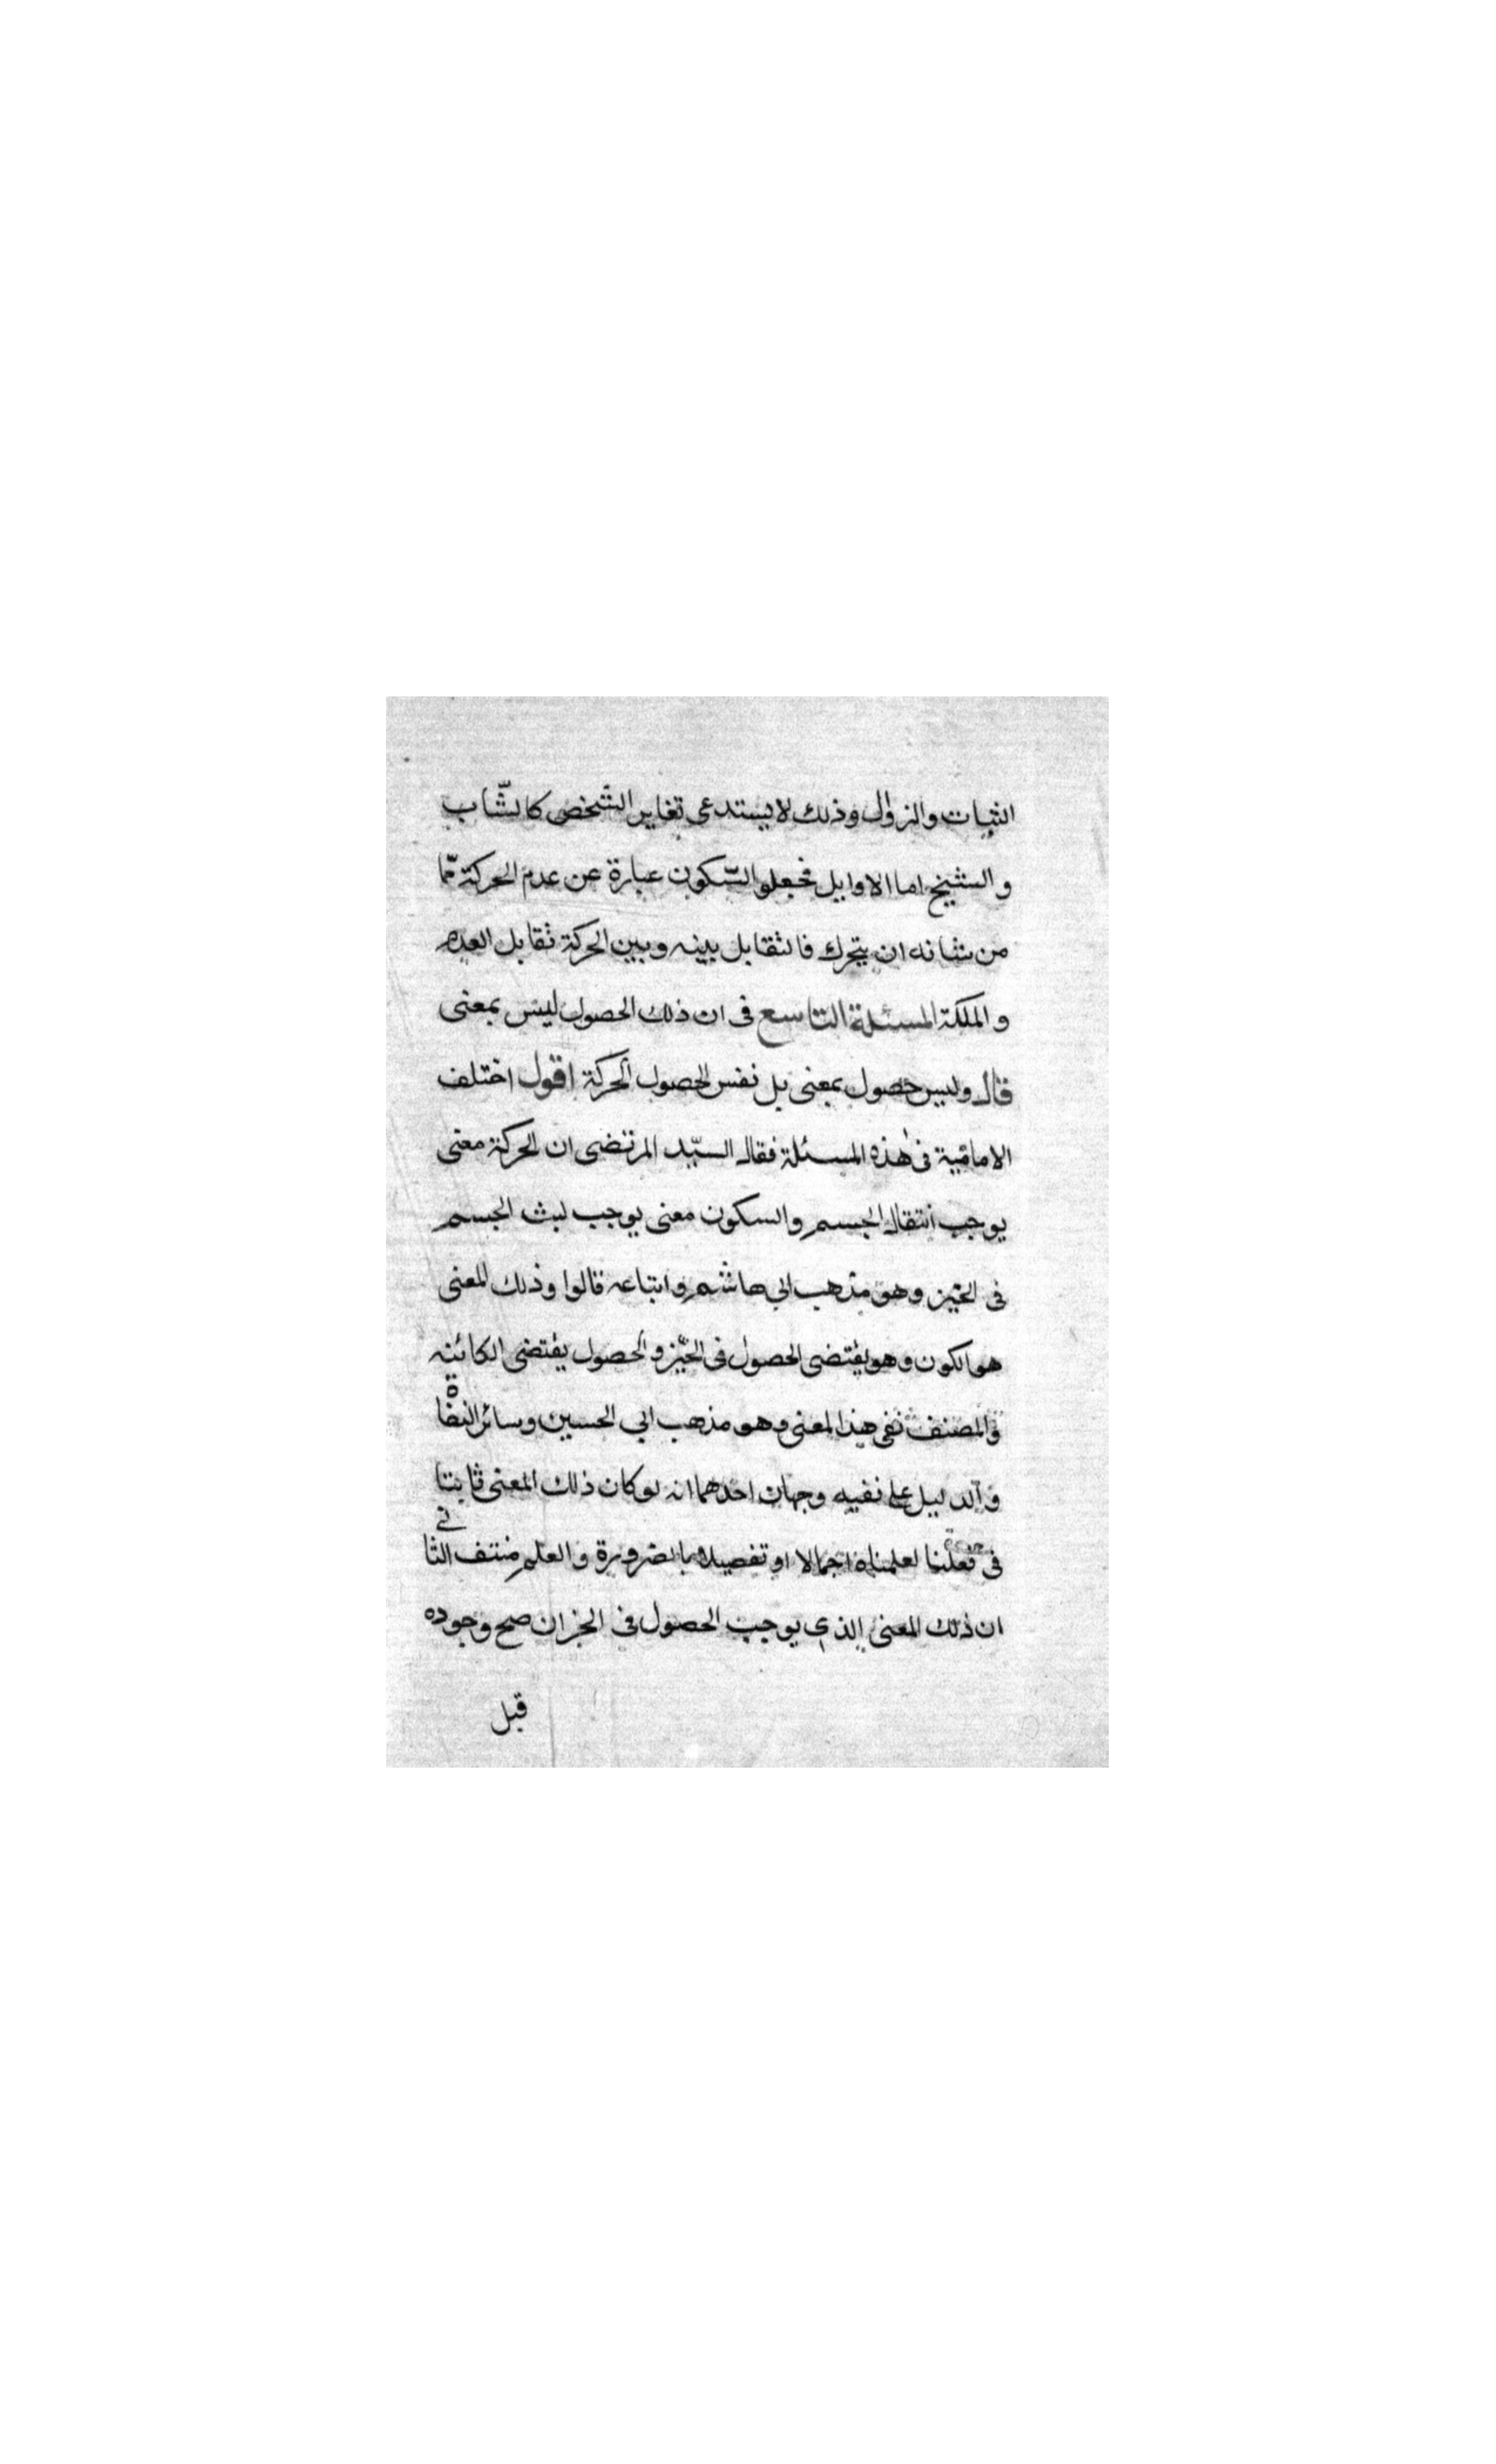 الثبات والزوال وذلك لا يستدعى تغاير الشّخص كالشّاب
والشيخ اما الاوايل فجعلوا السّكون عبارة عن عدم الحركة ممّا
من شانه ان يتحرك فالتقابل بينه وبين الحركة تقابل العدم
والملكة المسئلة التاسع فى ان ذلك الحصول ليس بمعنى
قال وليس حصول بمعنى بل نفس الحصول الحركة اقول اختلف
الامامية فى هذه المسئلة فقال السيّد المرتضى ان الحركة معنى
يوجب انتقال الجسم والسكون معنى يوجب لبث الجسم
فى الحيز وهو مذهب ابى هاشم واتباعه قالوا وذلك المعنى
هو الكون وهو يقتضى الحصول فى الحيّز والحصول يقتضى الكائنيه
والمصنف نفى هذا المعنى وهو مذهب ابى الحسين وسائر النفاة
والدليل على نفيه وجهان احدهما انه لو كان ذلك المعنى ثابتا
فى فعلنا لعلمناه اجمالا او تفصيلا بالضرورة والعلم منتف الثانى
ان ذلك المعنى الذى يوجب الحصول فى الحيز ان صح وجوده
قبل